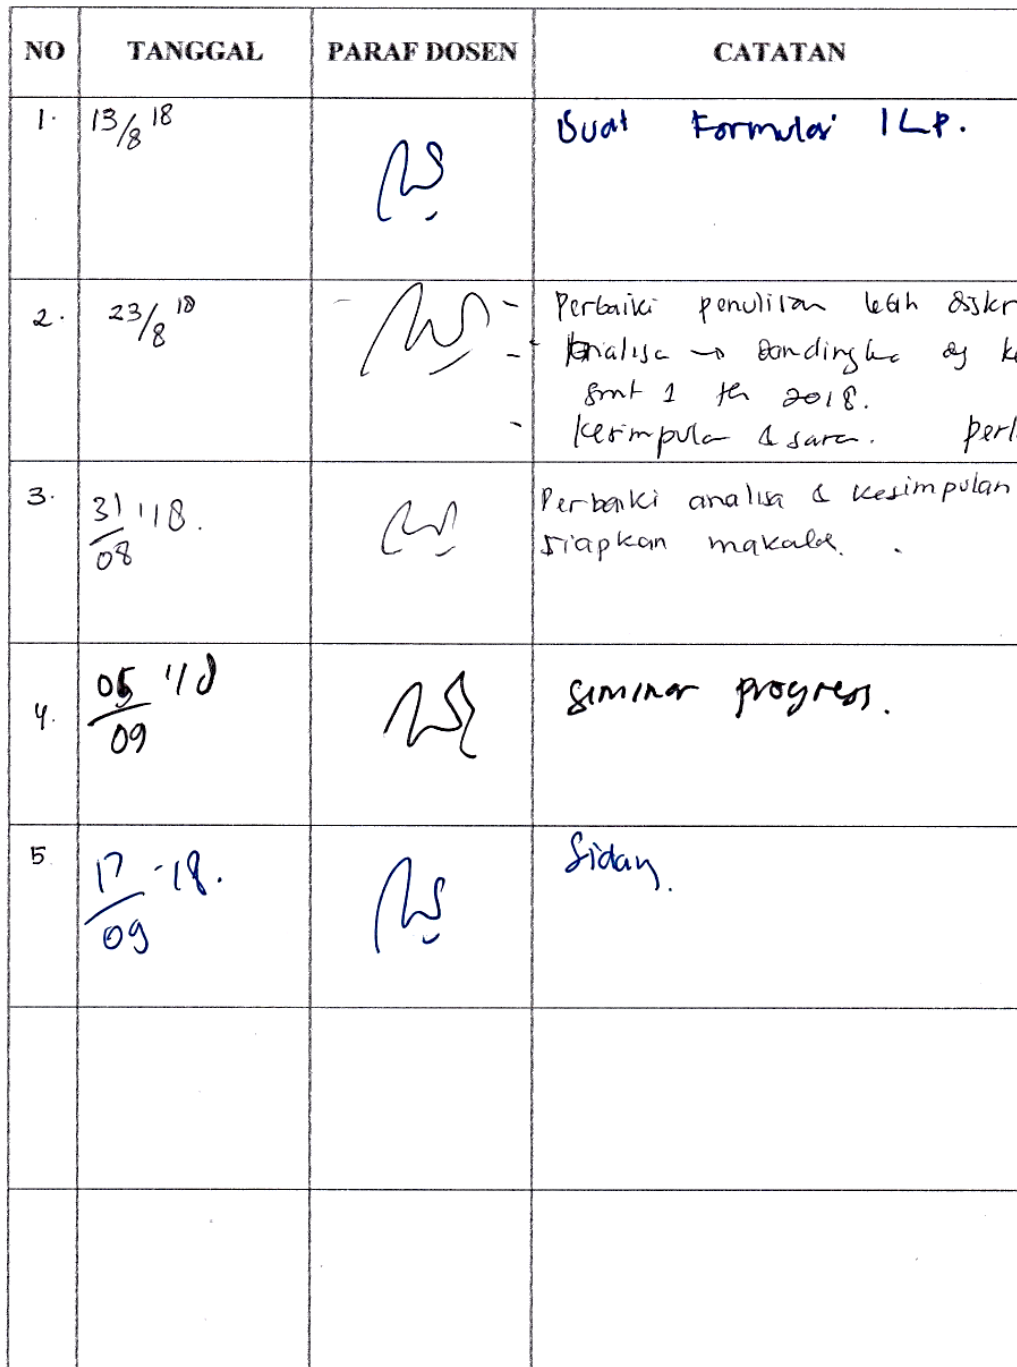 NO TANGGAL PARAF DOSEN CATATAN
1. 13/8 18 Buat Formulasi ILP.
2. 23/8 18 - Perbaiki penulisan
- Analisa →
smt 1 th 2018.
- Kesimpula & sara.
3. 31/08 '18. Perbaiki analisa & kesimpulan
siapkan makalah.
4. 05/09 '18 Seminar progress.
5. 17/09 -18. Sidang.